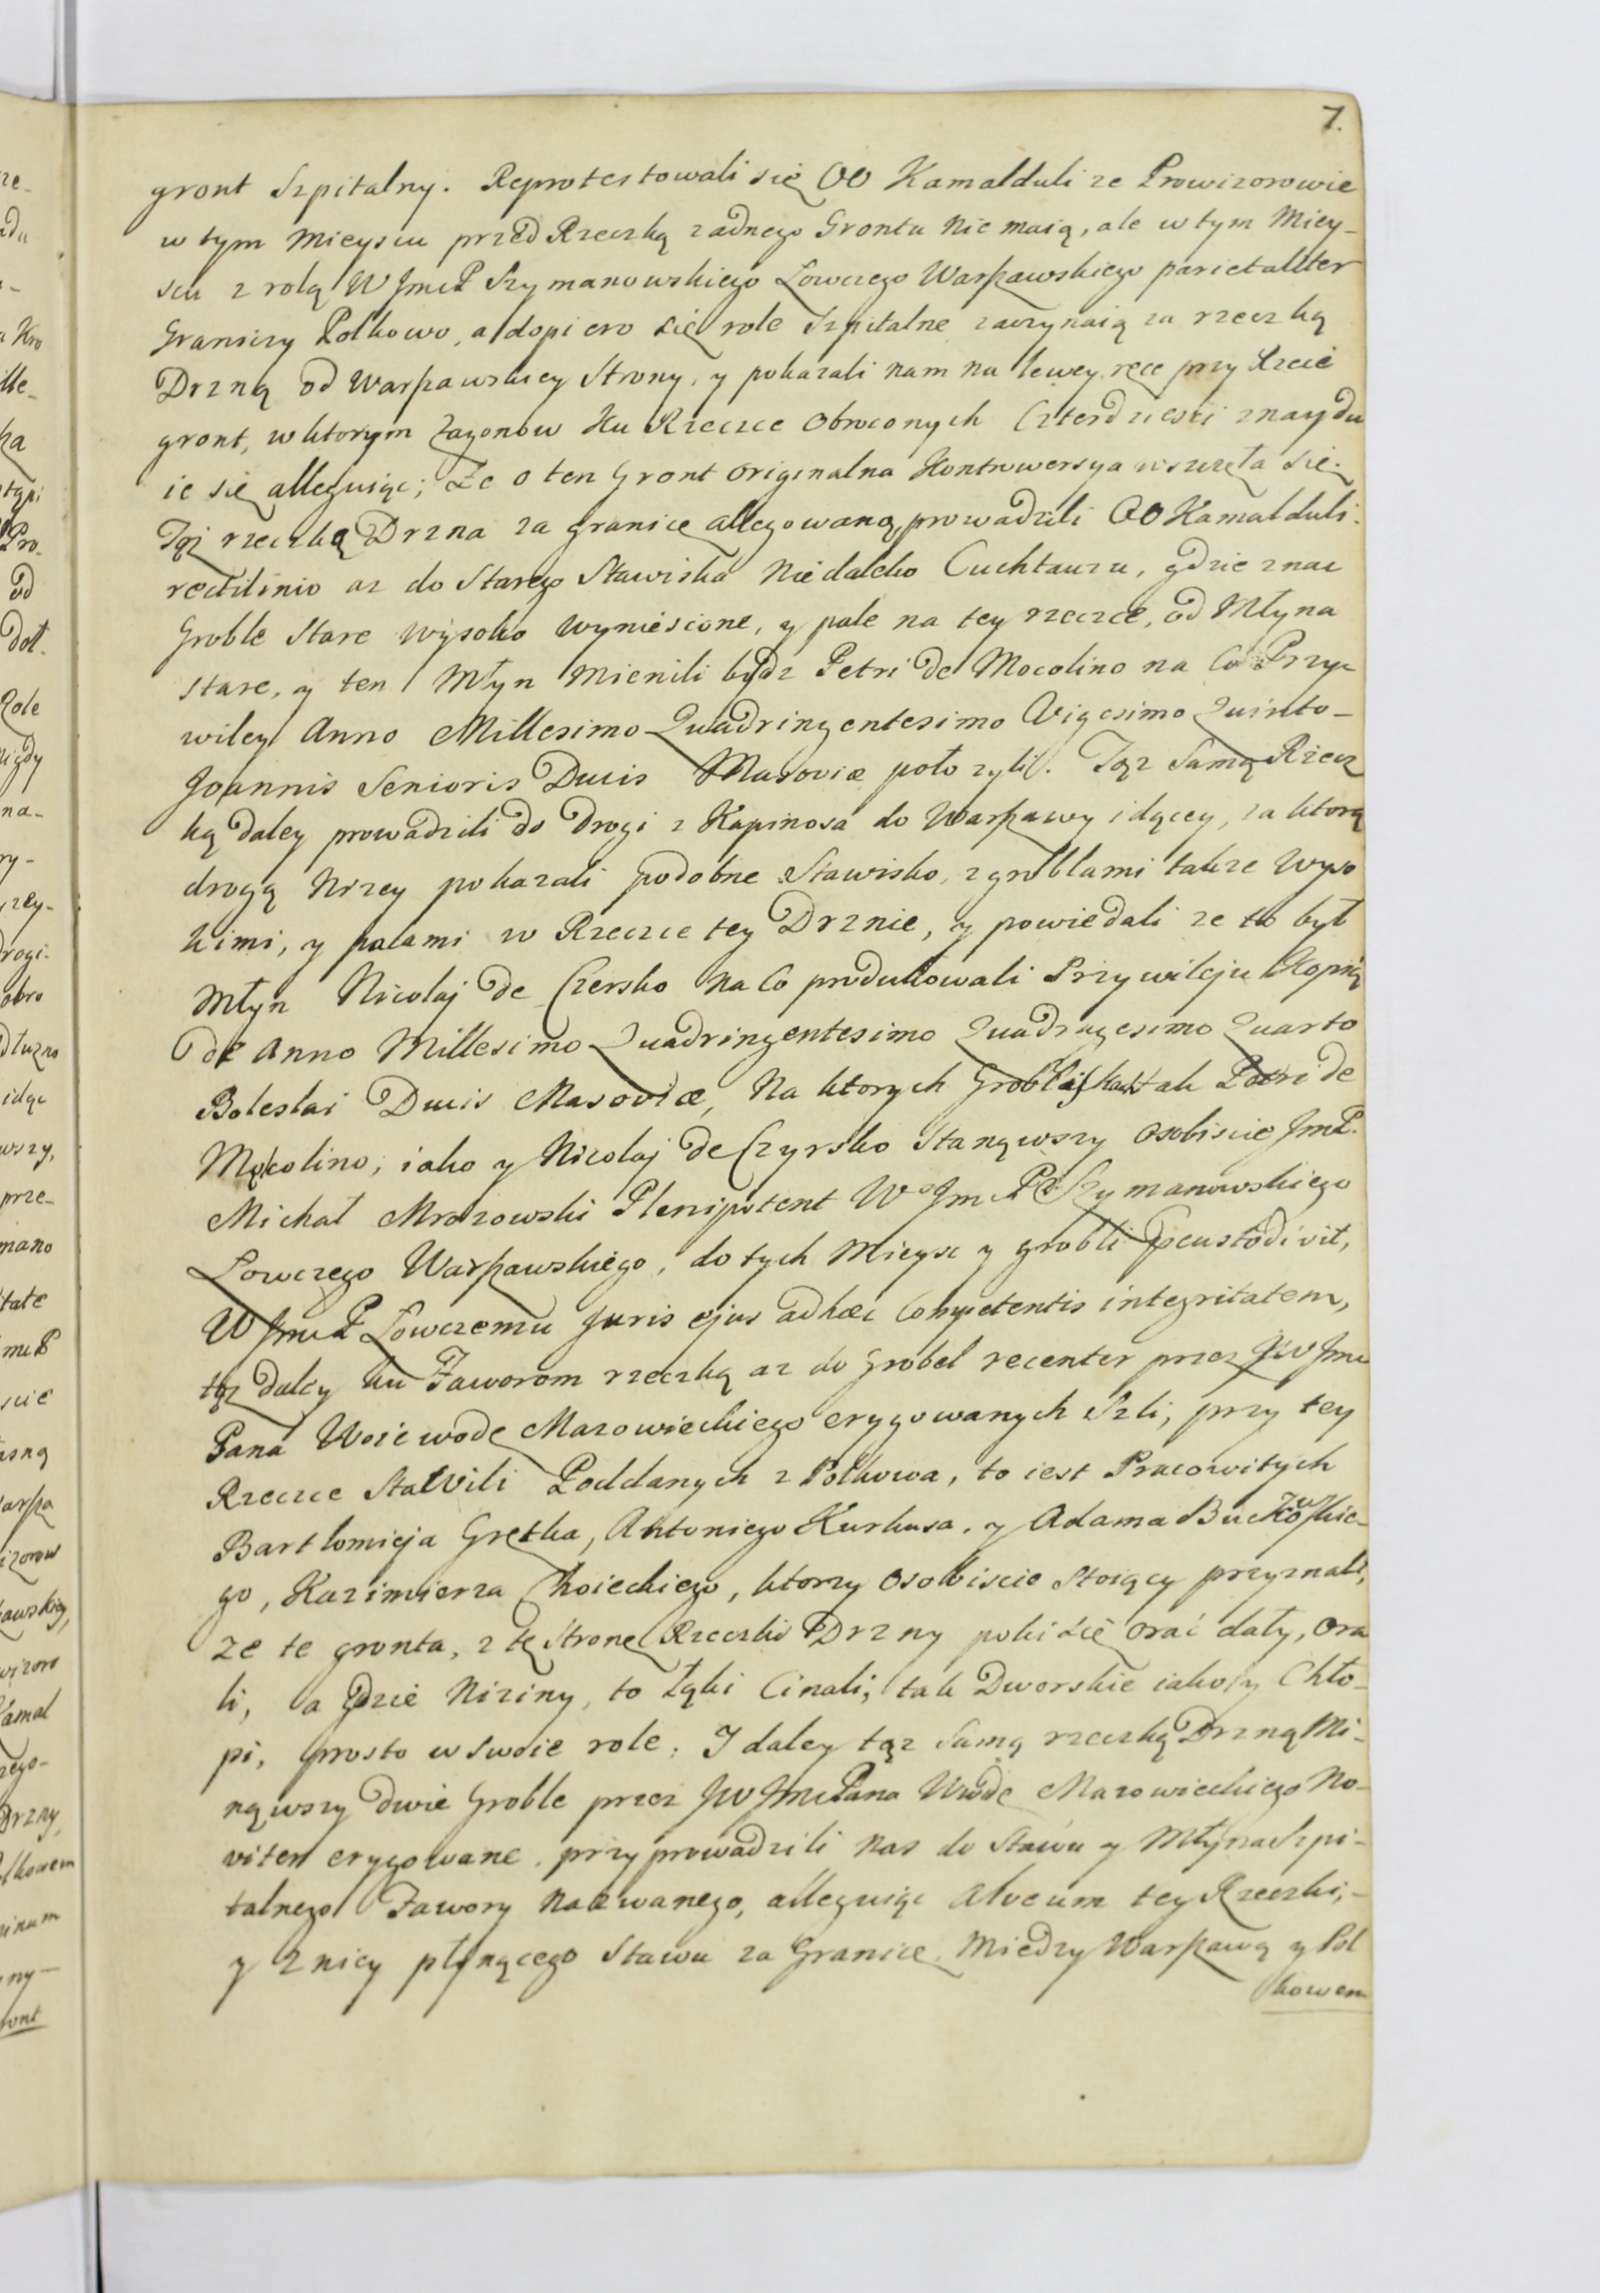 7.
gront Szpitalny. Reprotestowali się OO Kamalduli ze Prowizorowie
w tym Mieyscu przed Rzeczką zadnego Grontu Nie maią, ale w tym Miey-
scu z rolą W JmcP Szymanowskiego Łowczego Warszawskiego parietaliter
Graniczy Polkowo, a dopiero się role Szpitalne zaczynaią za rzeczką
Drzną od Warszawskiey Strony, y pokazali nam na lewey ręce przy Rzece
gront, w ktorym Zagonow Ku Rzeczce Obroconych Czterdziesci znaydu
ie się alleguiąc; Ze o ten Gront originalna Kontrowersya wszczęła się.
Tąż rzeczką Drzna za granice allegowaną prowadzili OO Kamalduli.
rectilinio az do Starego Stawiska Niedaleko Cuchtauzu, gdzie znac
Groble Stare wysoko wyniesione, y pale na tey rzeczce, od Młyna
stare, y ten Młyn Mienili bydz Petri de Mocolino na Co Przy-
wiley Anno Millesimo Quadringentesimo Vigesimo Quinto-
Joannis Senioris Ducis Masoviæ położyli. Tąz Samą Rzecz
ką daley prowadzili do Drogi z Kapinosa do Warszawy idącey, za ktorą
drogą Nizey pokazali podobne Stawisko, z groblami takze Wyso
kimi, y palami w Rzeczce tey Drznie, y powiedali ze to był
Młyn Nicolaj de Czersko Na Co produkowali Przywileju Kopią
de Anno Millesimo Quadringentesimo Quadragesimo Quarto
Boleslai Ducis Masoviæ, Na ktorych Groblach tak Petri de
Mąkolino, iako y Nicolaj de Czyrsko Stanąwszy Osobiscie JmP.
Michał Mrozowski Plenipotent Wo JmcPa Szymanowskiego
Łowczego Warszawskiego, do tych Mieysc y grobli Præcustodivit,
W JmcP Łowczemu Juris ejus ad hæc Competentis integritatem,
tąz daley ku Jaworom rzeczką az do Grobel recenter przez JW Jmc
Pana Woiewodę Mazowieckiego erygowanych Szli, przy tey
Rzeczce Stawili Poddanych z Polkowa, to iest Pracowitych
Bartłomieja Gretka, Antoniego Kurkusa, y Adama Buckowskie-
go, Kazimierza Choieckiego, ktorzy Osobiscie Stoiący przyznali,
ze te gronta, z tę Stronę Rzeczki Drzny poki się Orać dały, Ora
li, a gdzie Niziny, to Łąki Cinali, tak Dworskie iako y Chło-
pi, prosto w swoie role. I daley tąz Samą rzeczką Drzną Mi-
nąwszy dwie Groble przez JW JmcPana Wwdę Mazowieckiego No-
viter erygowane, przyprowadzili nas do Stawu y Młyna Szpi-
talnego Jawory Nazwanego, alleguiąc alveum tey Rzeczki,-
y Z niey płynącego Stawu za Granice Miedzy Warszawą y Pol
kowem